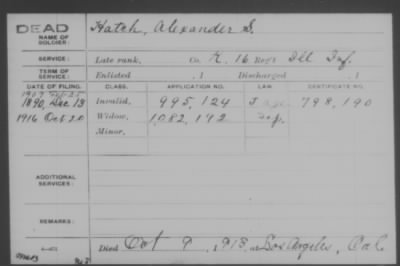 DEAD
NAME OF SOLDIER:
Hatch, Alexander S.
SERVICE:
Late rank, Co. K, 16 Reg't Ill Inf.
TERM OF SERVICE:
Enlisted , 1 Discharged , 1
DATE OF FILING. CLASS. APPLICATION NO. LAW. CERTIFICATE NO.
1907 Feb 25
1890, Dec 13 Invalid, 995,124 798,190
1916 Oct 20 Widow, 1,082,192
Minor,
ADDITIONAL SERVICES:
REMARKS:
Died Oct 9, 1913, at Los Angeles, Cal.